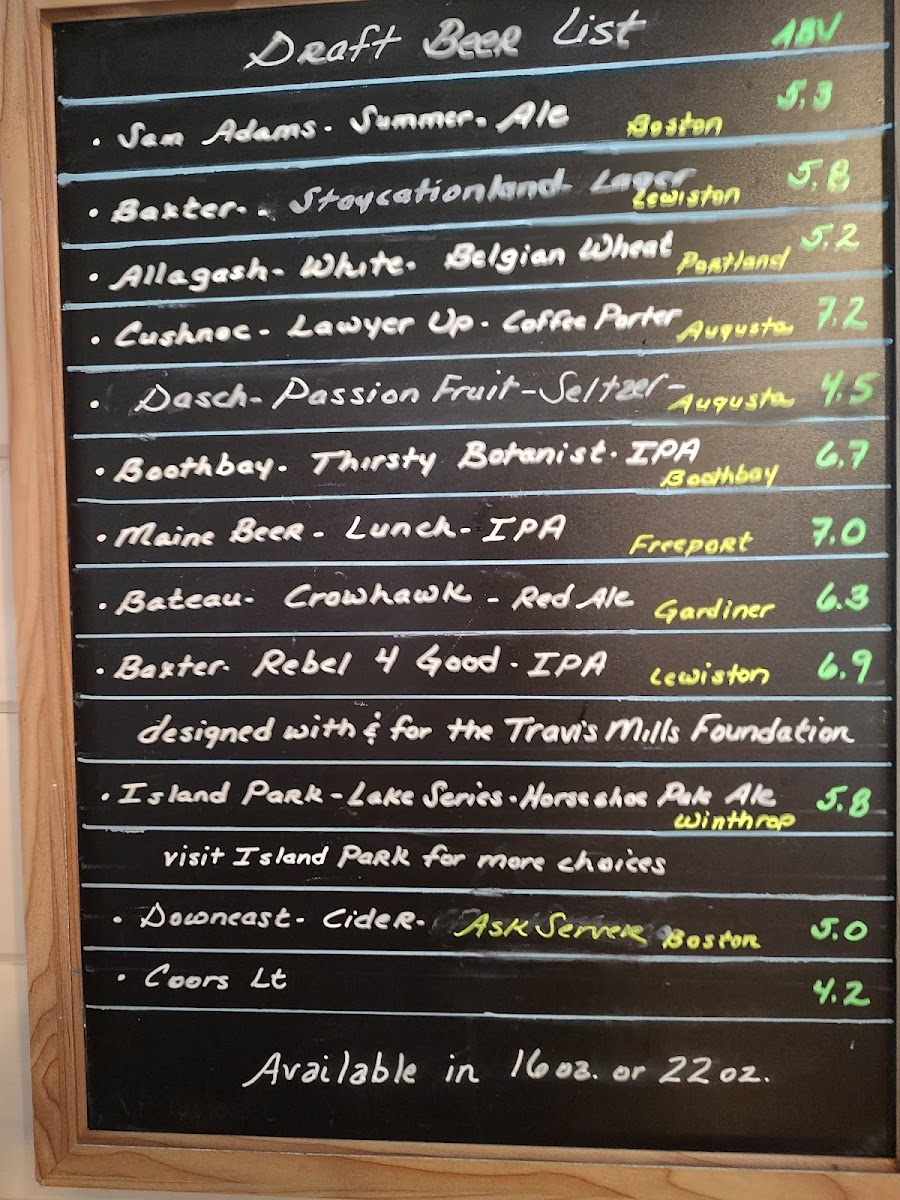 Draft Beer List ABV
• Sam Adams. Summer. Ale Boston 5.3
• Baxter. Staycationland Lager Lewiston 5.8
• Allagash. White. Belgian Wheat Portland 5.2
• Cushnoc - Lawyer Up. Coffee Porter Augusta 7.2
• Dasch - Passion Fruit - Seltzer - Augusta 4.5
• Boothbay. Thirsty Botanist. IPA Boothbay 6.7
• Maine Beer - Lunch - IPA Freeport 7.0
• Bateau - Crowhawk - Red Ale Gardiner 6.3
• Baxter. Rebel 4 Good. IPA Lewiston 6.9
designed with & for the Travis Mills Foundation
• Island Park - Lake Series. Horseshoe Pale Ale Winthrop 5.8
visit Island Park for more choices
• Downeast - Cider. Ask Server Boston 5.0
• Coors Lt 4.2
Available in 16 oz. or 22 oz.